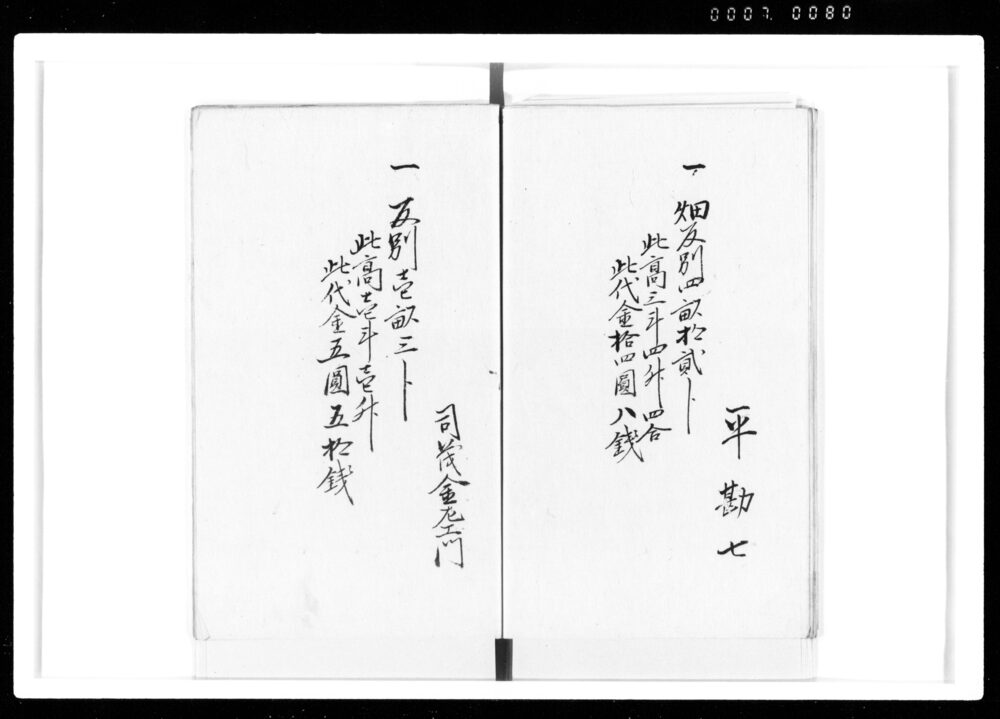 0007. 0080
一
畑反別四畝拾貳卜
此高三斗四升四合
此代金拾四圓八錢
平 勘七
一
反別壱畝三卜
此高壱斗壱升
此代金五圓五拾錢
司 茂金左エ門